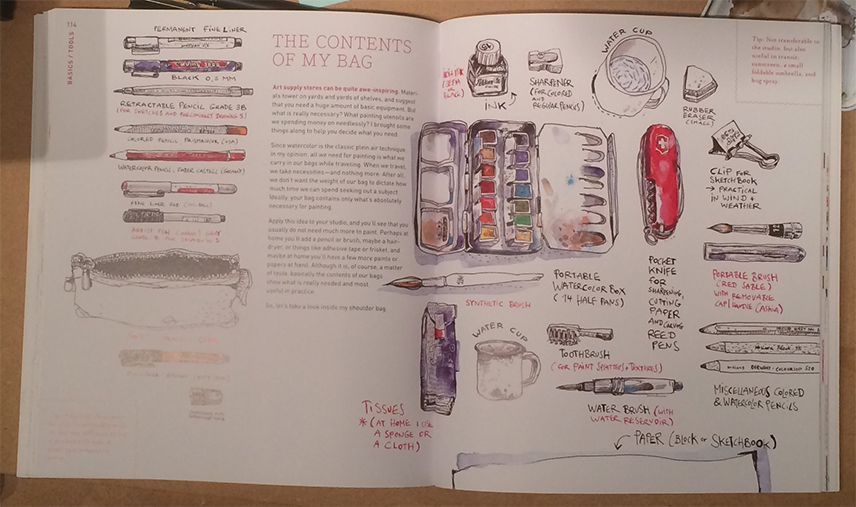 114
BASICS / TOOLS
PERMANENT FINE LINER
BLACK 0,5 MM
RETRACTABLE PENCIL GRADE 3B
(FOR SKETCHES AND PRELIMINARY DRAWINGS)
COLORED PENCIL PRISMACOLOR (USA)
WATERCOLOR PENCIL, FABER CASTELL (GERMANY)
THE CONTENTS
OF MY BAG
Art supply stores can be quite awe-inspiring. Materi-
als tower on yards and yards of shelves, and suggest
that you need a huge amount of basic equipment. But
what is really necessary? What painting utensils are
we spending money on needlessly? I brought some
things along to help you decide what you need.
Since watercolor is the classic plein air technique
in my opinion, all we need for painting is what we
carry in our bags while traveling. When we travel,
we take necessities—and nothing more. After all,
we don't want the weight of our bag to dictate how
much time we can spend seeking out a subject.
Ideally, your bag contains only what's absolutely
necessary for painting.
Apply this idea to your studio, and you'll see that you
usually do not need much more to paint. Perhaps at
home you'll add a pencil or brush, maybe a hair-
dryer, or things like adhesive tape or frisket, and
maybe at home you'll have a few more paints or
papers at hand. Although it is, of course, a matter
of taste, basically the contents of our bags
show what is really needed and most
useful in practice.
So, let's take a look inside my shoulder bag.
INK
SHARPENER
(FOR COLORED
AND
REGULAR PENCILS)
WATER CUP
RUBBER
ERASER
(SMALL)
Tip: Not transferable to
the studio, but also
useful in transit:
sunscreen, a small
foldable umbrella, and
bug spray.
CLIP FOR
SKETCHBOOK
→ PRACTICAL
IN WIND +
WEATHER
PORTABLE
WATERCOLOR BOX
(14 HALF PANS)
SYNTHETIC BRUSH
POCKET
KNIFE
FOR
SHARPENING,
CUTTING
PAPER
AND CARVING
REED
PENS
PORTABLE BRUSH
(RED SABLE)
WITH REMOVABLE
CAP/HANDLE
WATER CUP
TOOTHBRUSH
(FOR PAINT SPLATTERS + TEXTURES)
WATER BRUSH (WITH
WATER RESERVOIR)
MISCELLANEOUS COLORED
& WATERCOLOR PENCILS
TISSUES
* (AT HOME I USE
A SPONGE OR
A CLOTH)
PAPER (BLOCK OR SKETCHBOOK)